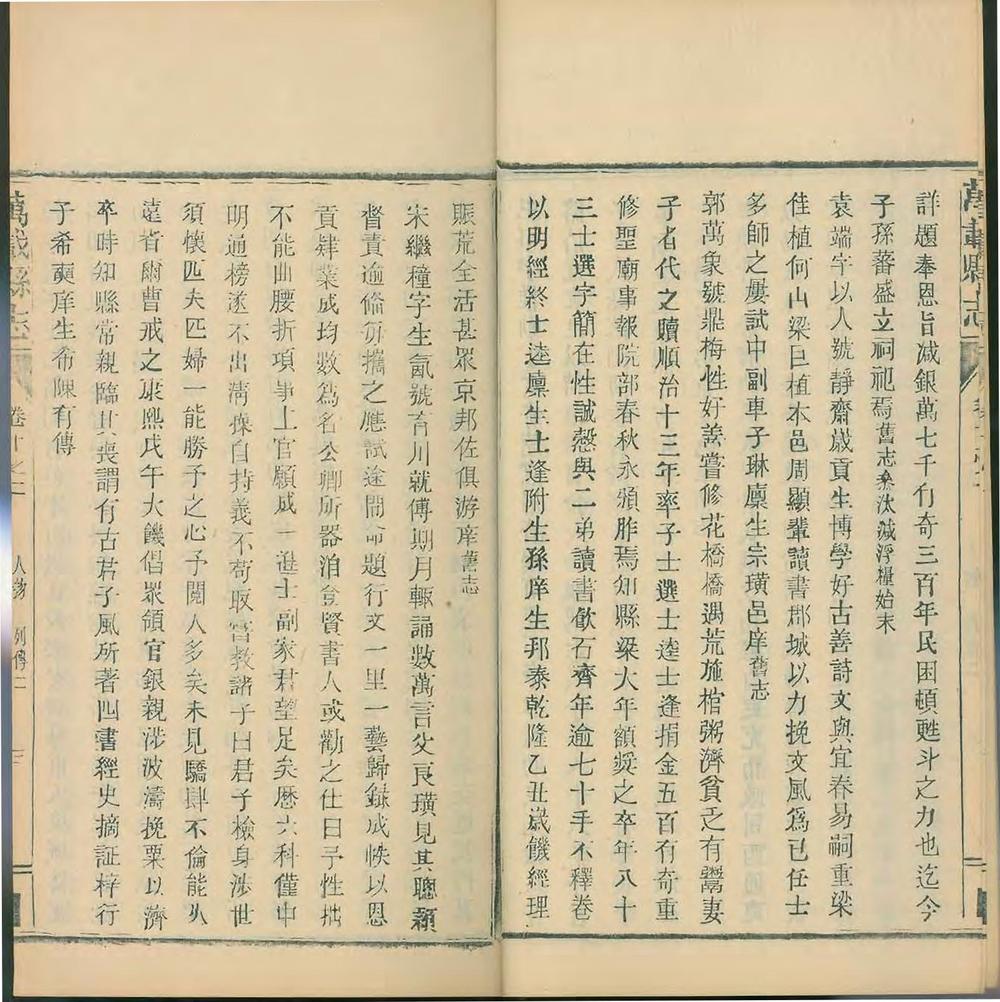 萬載縣志
詳題奉恩旨減銀萬七千有奇三百年民困頓甦斗之力也迄今
子孫蕃盛立祠祀焉舊志叅汰減浮糧始末
袁端字以人號靜齋歲貢生博學好古善詩文與宜春易嗣重梁
佳植何山梁巨植本邑周顯輩讀書郡城以力挽文風爲己任士
多師之屢試中副車子琳廩生宗璜邑庠舊志
郭萬象號鼎梅性好善嘗修花橋橋遇荒施棺粥濟貧乏有鬻妻
子者代之贖順治十三年率子士選士逵士逢捐金五百有奇重
修聖廟事報院部春秋永頒胙焉知縣梁大年額奬之卒年八十
三士選字簡在性誠慤與二弟讀書歛石齊年逾七十手不釋卷
以明經終士逵廩生士逢附生孫庠生邦泰乾隆乙丑歲饑經理
賑荒全活甚眾京邦佐俱游庠舊志
宋繼穜字生氤號育川就傅期月輒誦數萬言父良璜見其聰穎
督責逾倫每攜之應試途間命題行文一里一藝歸錄成帙以恩
貢肄業成均數爲名公卿所器洎登賢書人或勸之仕曰予性拙
不能曲腰折項事上官願成一進士副家君望足矣歷六科僅中
明通榜遂不出淸操自持義不苟取嘗教諸子曰君子檢身涉世
須懷匹夫匹婦一能勝予之心予閱人多矣未見驕肆不倫能久
遠者爾曹戒之康熙戊午大饑倡眾領官銀親涉波濤挽粟以濟
卒時知縣常親臨其喪謂有古君子風所著四書經史摘証梓行
子希奭庠生希陳有傳
萬載縣志 卷十之二 人物 列傳二 三